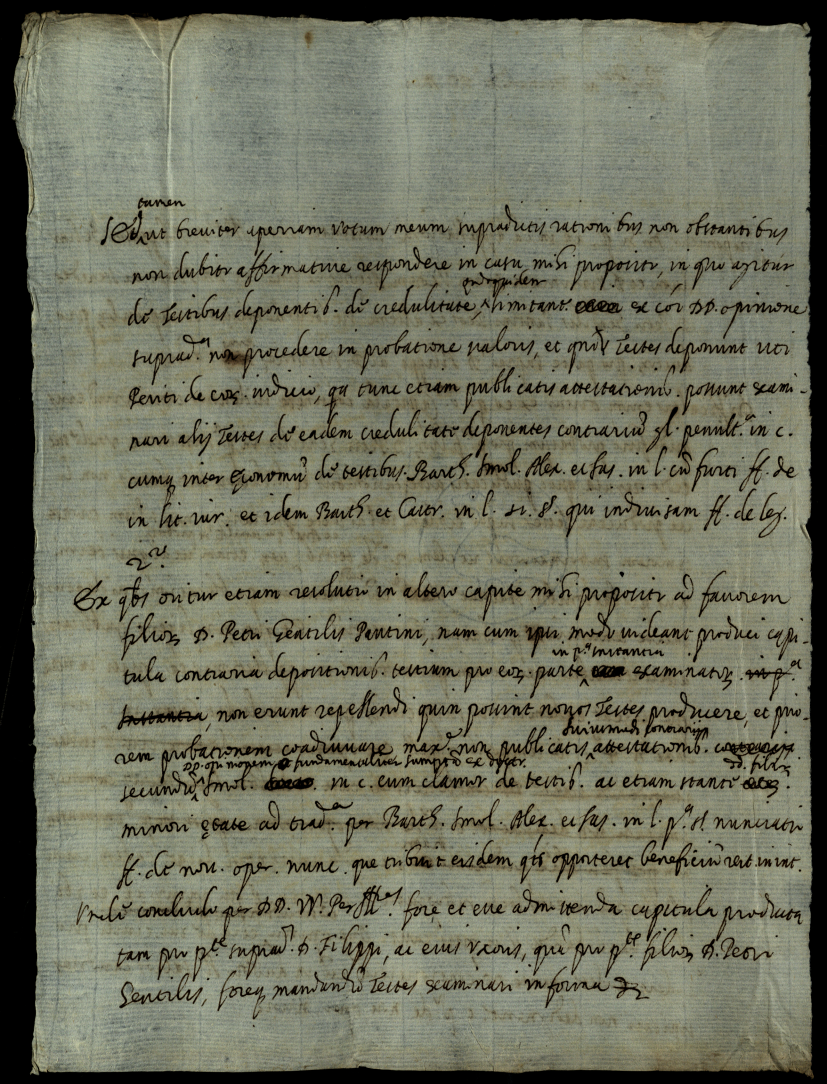 tamen
Sed ut breviter aperiam votum meum supradictis rationibus non obstantibus
non dubito affirmative respondere in casu mihi proposito, in quo agitur
quoquidem
de Testibus deponentib. de credulitate, limitant. ex coi DD. opinione
suprad.a non procedere in probatione valoris, et qñ Testes deponunt uti
Periti de eor. iudicio, qa tunc etiam publicatis attestationib. possunt exami-
nari alij Testes de eadem credulitate deponentes contrariũ gl. penult.a in c.
cumq inter de testibus. Barth. Imol. Alex. et Ias. in l. cũ furti ff. de
in lit. iur. et idem Barth. et Castr. in l. si. §. qui indivisam ff. de leg.
2º
Ex qbs oritur etiam resolutio in altero capite mihi proposito ad favorem
filior D. Petri Gentilis Pantini, nam cum ipsi modo videant produci capi-
in p.a instantia
tula contraria depositionib. testium pro eor. parte examinator. in p.a
Instantia, non erunt repellendi quin possint novos Testes producere, et prio-
huiusmodi contrarijs
rem probationem coadiuvare, max.e non publicatis attestationib.
DD. fundamentaliter sumpto ex
dd. filior
secundũ Imol. in c. cum clamor de testib. ac etiam stante
minori ętate ad trad.a per Barth. Imol. Alex. et Ias. in l. p.a §. nunciatio
ff. de nov. oper. nunc. que tribuit eisdem qts opporteret beneficiũ rest. in int.
Unde concludo per DD. VV. Per Ill.es fore et esse admittenda capitula producta
tam pro p.te suprad. D. Filippi, ac eius uxoris, quã pro p.te filior D. Petri
Gentilis, foreq mandandũ Testes examinari in forma